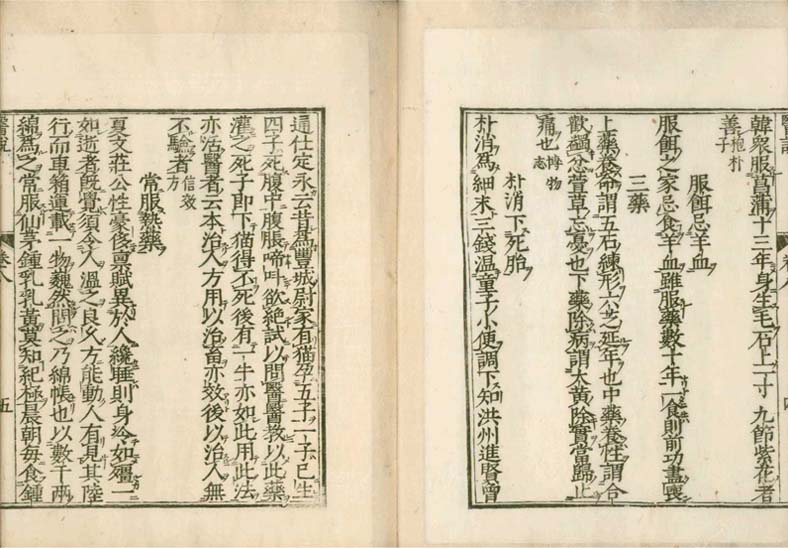 韓衆服菖蒲十三年身生毛石上一寸九節紫花者
善抱朴子
服餌忌羊血
服餌之家忌食羊血雖服藥數十年一食則前功盡喪
三藥
上藥養命謂五石練形六芝延年也中藥養性謂合
歡蠲忿萱草忘憂也下藥除病謂大黃除實當歸止
痛也博物志
朴消下死胎
朴消爲細末三錢温童子小便調下知洪州進賢曾
通仕定永云昔爲豐城尉家有猫孕五子一子已生
四子死腹中腹脹啼叫欲絕試以問醫醫教以此藥
灌之死子即下猫得不死後有一牛亦如此用此法
亦活醫者云本治人方用以治畜亦效後以治人無
不驗者信效方
常服熱藥
夏文莊公性豪侈稟賦異於人纔睡則身冷如殭一
如逝者既覺須令人温之良久方能動人有見其陸
行而車箱運載一物巍然問之乃綿帳也以數千兩
綿爲之常服仙茅鍾乳乳黃莫知紀極晨朝每食鍾
醫說 卷八 五